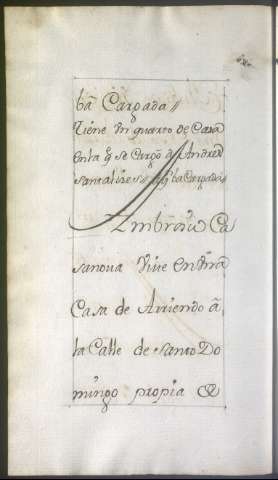 bā Cargada //
Tiene Un quarto de Casa
en la q̄ se Cargō â Andres
Santalices // q̄ ba Cargada //
Ambrosio Ca
sanova Vive en Una
Casa de Arriendo ā
la Calle de Santo Do
mingo propia de